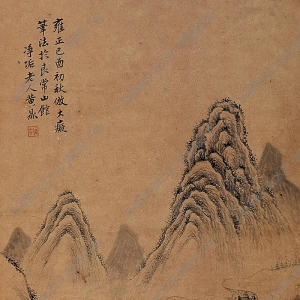 雍正己酉初秋倣大癡
筆法於良常山館
淨垢老人黄鼎